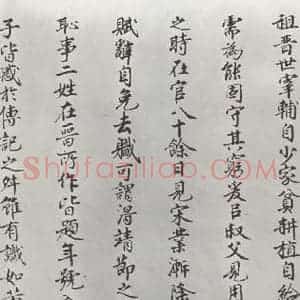 祖晉世宰輔自少家貧耕植自給
需為能固守其窮爰叔父見用
之時在官八十餘日見宋業漸隆
賦辭自免去職可謂靖節之
恥事二姓在晉所作皆題年號
子皆臧於傳記之舛雖有識如
Shufaziliao.com